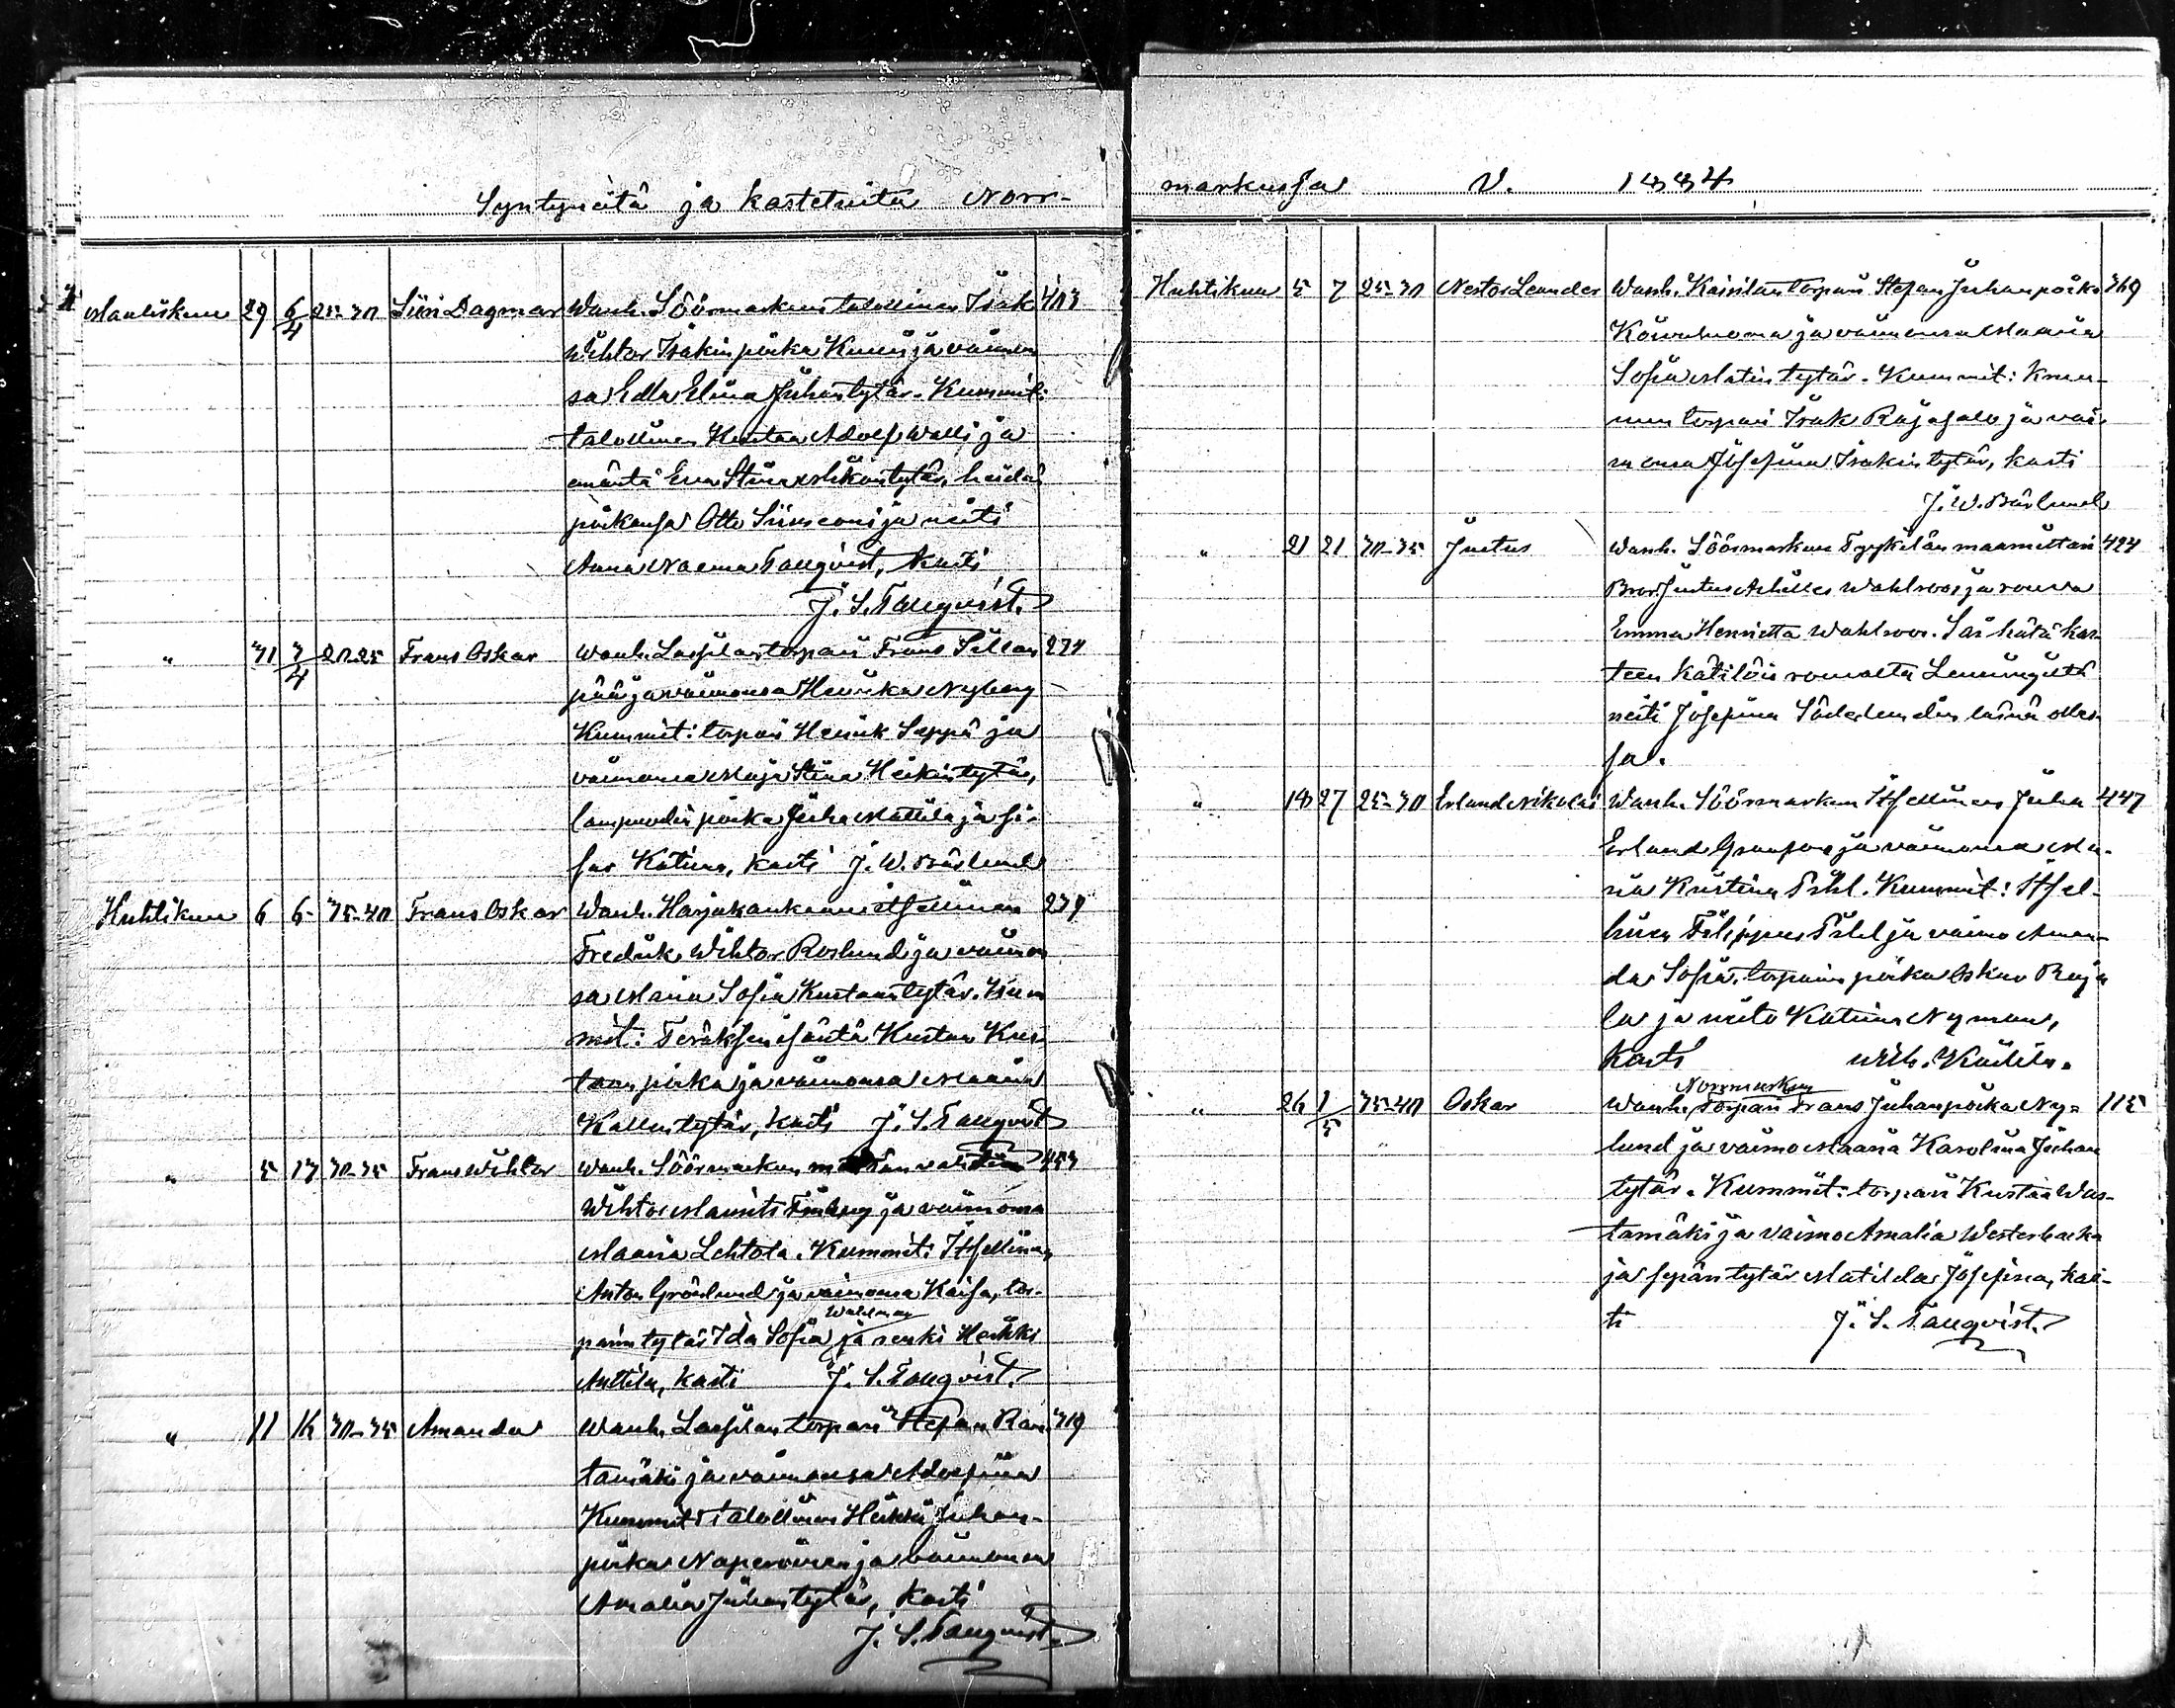 Syntyneitä ja kastetuita Norr-
Maaliskuu 29 6/4 25-30 Siiri Dagmar Wanh. Söörmarkun talollinen Isak 403
Wihtor Isakinpoika Knuus ja vaimon
sa Edla Elina Juhantytär. Kummit:
talollinen Kustaa Adolf Walli ja
emäntä Eva Stina Mikintytär, heidän
poikansa Otto Simeoni ja neiti
Anna Naema Tanqvist, kasti
J. S. Tanqvist.
" 31 3/4 20-25 Frans Oskar Wanh. Lassilan torpari Frans Sillan 274
pää ja vaimonsa Henrika Nyberg
Kummit: torpari Henrik Seppä ja
vaimonsa Maja Stina Heikintytär,
lampuodin poika Juha Mattila ja si-
sar Katiina, kasti J. W. Bärlund
Huhtikuu 6 6 35-40 Frans Oskar Wanh. Harjakankaan itsellinen 239
Fredrik Wihtor Roslund ja vaimon
sa Maria Sofia Kustaantytär. Kum
mit: Teräksen isäntä Kustaa Kus-
taanpoika ja vaimonsa Maaria
Kallentytär, kasti J. S. Tanqvist
" 5 13 30-35 Frans Wihtor Wanh. Söörmarkun 453
Wihtor Maurits ja vaimonsa
Maaria Lehtola. Kummit: Itsellinen
Anton Grönlund ja vaimonsa Kaisa, tor-
Wahlman
parintytär Ida Sofia ja renki Heikki
Anttila, kasti J. S. Tanqvist.
" 11 14 30-35 Amanda Wanh. Lassilan torpari Stefan Ran 319
tamäki ja vaimonsa Adolfiina
Kummit: talollinen Heikki Juhan-
poika Naperoinen ja vaimonsa
Amalia Juhantytär, kasti
J. S. Tanqvist.
markussa V. 1884
Huhtikuu 5 7 25-30 Nestor Leander Wanh. Kairilan torpari Stefan Juhanpoika 369
Koivuluoma ja vaimonsa Maaria
Sofia Matintytär. Kummit:
torpari Isak Rajasalo ja vai-
monsa Josefina Isakintytär, kasti
J. W. Bärlund
" 21 21 30-35 Justus Wanh. Söörmarkun Tyykilän maamittari 424
Bror Justus Achilles Wahlroos ja rouva
Emma Henrietta Wahlroos. Sai hätäkas
teen kätilöin rouvalta
neiti Josefina Söderlundin läsnä olles
sa.
" 18 27 25-30 Erland Nikolai Wanh. Söörmarkun Itsellinen Juha 447
Erland Granfors ja vaimonsa Ma-
ria Kristina Pihl. Kummit: Itsel-
linen Filippus Pihl ja vaimo Aman-
da Sofia, torparin poika Oskar Raja
la ja neito Katiina Nyman,
kasti Wilh. Kailila.
Norrmarkun
" 26 1/5 35-40 Oskar Wanh. Torpari Frans Juhanpoika Ny- 115
lund ja vaimo Maaria Karolina Juhan
tytär. Kummit: torpari Kustaa Was-
tamäki ja vaimo Amalia Westerbacka
ja sepäntytär Matilda Josefina, kas-
ti J. S. Tanqvist.